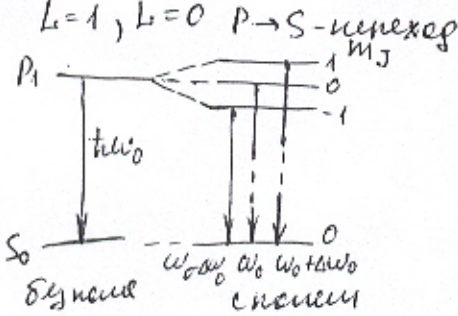 L=1, L=0 P→S-переход
m_J
P₁ 1
0
-1
ħω₀
S₀ 0
ω₀-Δω₀ ω₀ ω₀+Δω₀
без поля с полем